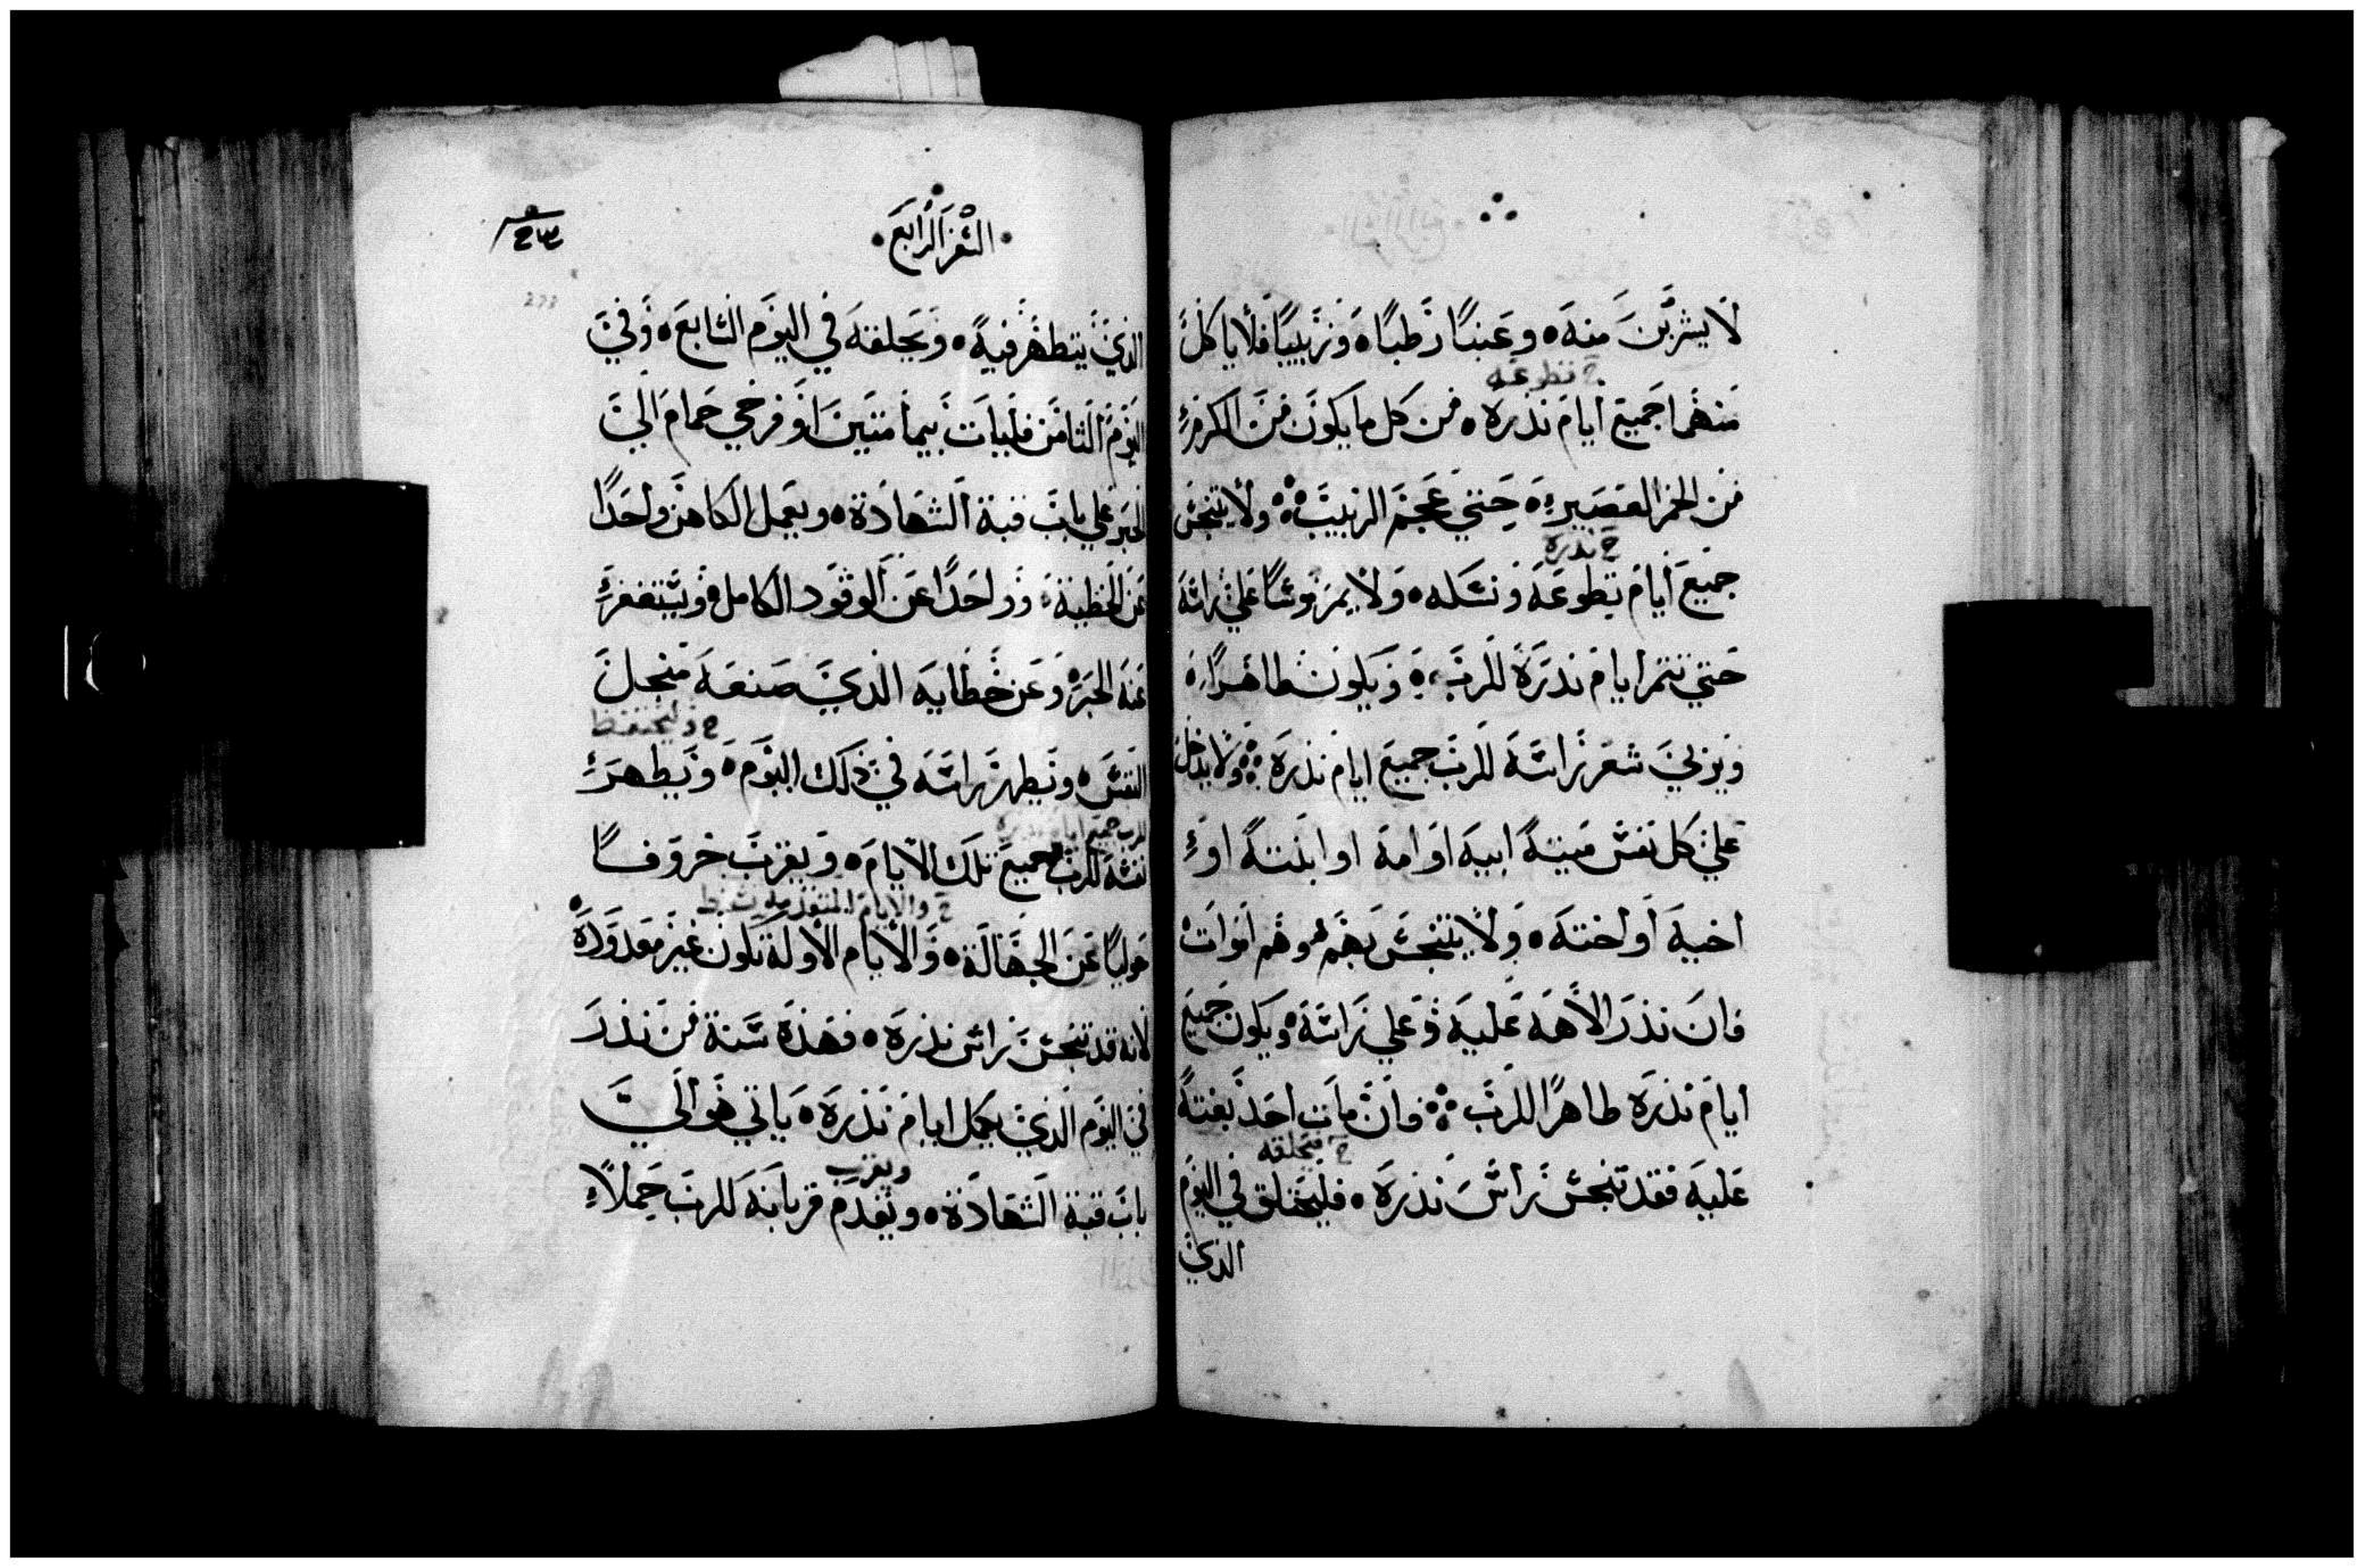 لا يشربن منه وعنبًا رطبًا وزبيبًا فلا ياكل
ح تطوعه
منهما جميع ايام نذره من كل ما يكون من الكرم
من الخمر العصير حتي عجم الزبيب ولا يتنجس
ح نذره
جميع ايام تطوعه ونسكه ولا يمر موسًا علي راسه
حتي تتم ايام نذره للرب ويكون طاهرًا
ويربي شعر راسه للرب جميع ايام نذره ولا يدخل
علي كل نفس ميتة ابيه او امه او ابنته او
اخيه او اخته ولا يتنجس بهم وهم اموات
فان نذر الاهه عليه وعلي راسه ويكون جميع
ايام نذره طاهرًا للرب وان مات احد بغتة
ح فيحلقه
عليه فقد تنجس راس نذره فليحلق في اليوم
الذي
السفر الرابع
الذي يتطهر فيه ويحلقه في اليوم السابع وفي
اليوم الثامن فليات بيمامتين او فرخي حمام الي
الحبر علي باب قبة الشهادة ويعمل الكاهن واحدًا
عن الخطية وواحدًا عن الوقود الكامل ويستغفر
عنه الحبر وعن خطايه الذي صنعه من اجل
ح وليحتفظ
النفس ويطهر راسه في ذلك اليوم ويطهر
للرب جميع ايام نذره
نفسه للرب جميع تلك الايام ويقرب خروفًا
حوليًا عن الجهالة والايام الاولة تكون غير معدودة
لانه قد تنجس راس نذره فهذه سنة من نذر
في اليوم الذي يكمل ايام نذره ياتي هو الي
ويقرب
باب قبة الشهادة ويقدم قربانه للرب حملًا